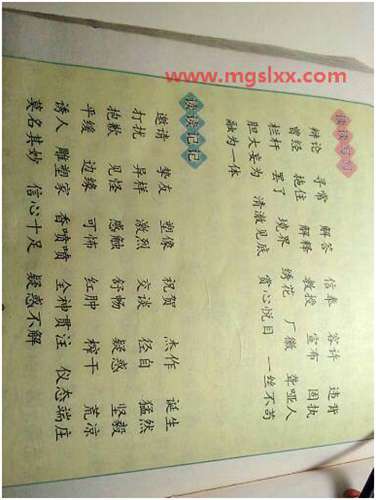 www.mgslxx.com
读读写写
辩论 寻常 解答 信奉 容许 违背
曾经 拖住 解释 教授 宣布 固执
栏杆 罢了 境界 绣花 厂徽 聋哑人
胆大妄为 清澈见底 赏心悦目 一丝不苟
融为一体
读读记记
邀请 挚友 塑像 祝贺 杰作 诞生
打扰 异样 激烈 交谈 径自 猛然
抱歉 见怪 感触 舒畅 疑惑 坚毅
平缓 边缘 可怖 红肿 榨干 荒凉
诱人 雕塑家 香喷喷 全神贯注 仪态端庄
莫名其妙 信心十足 疑惑不解